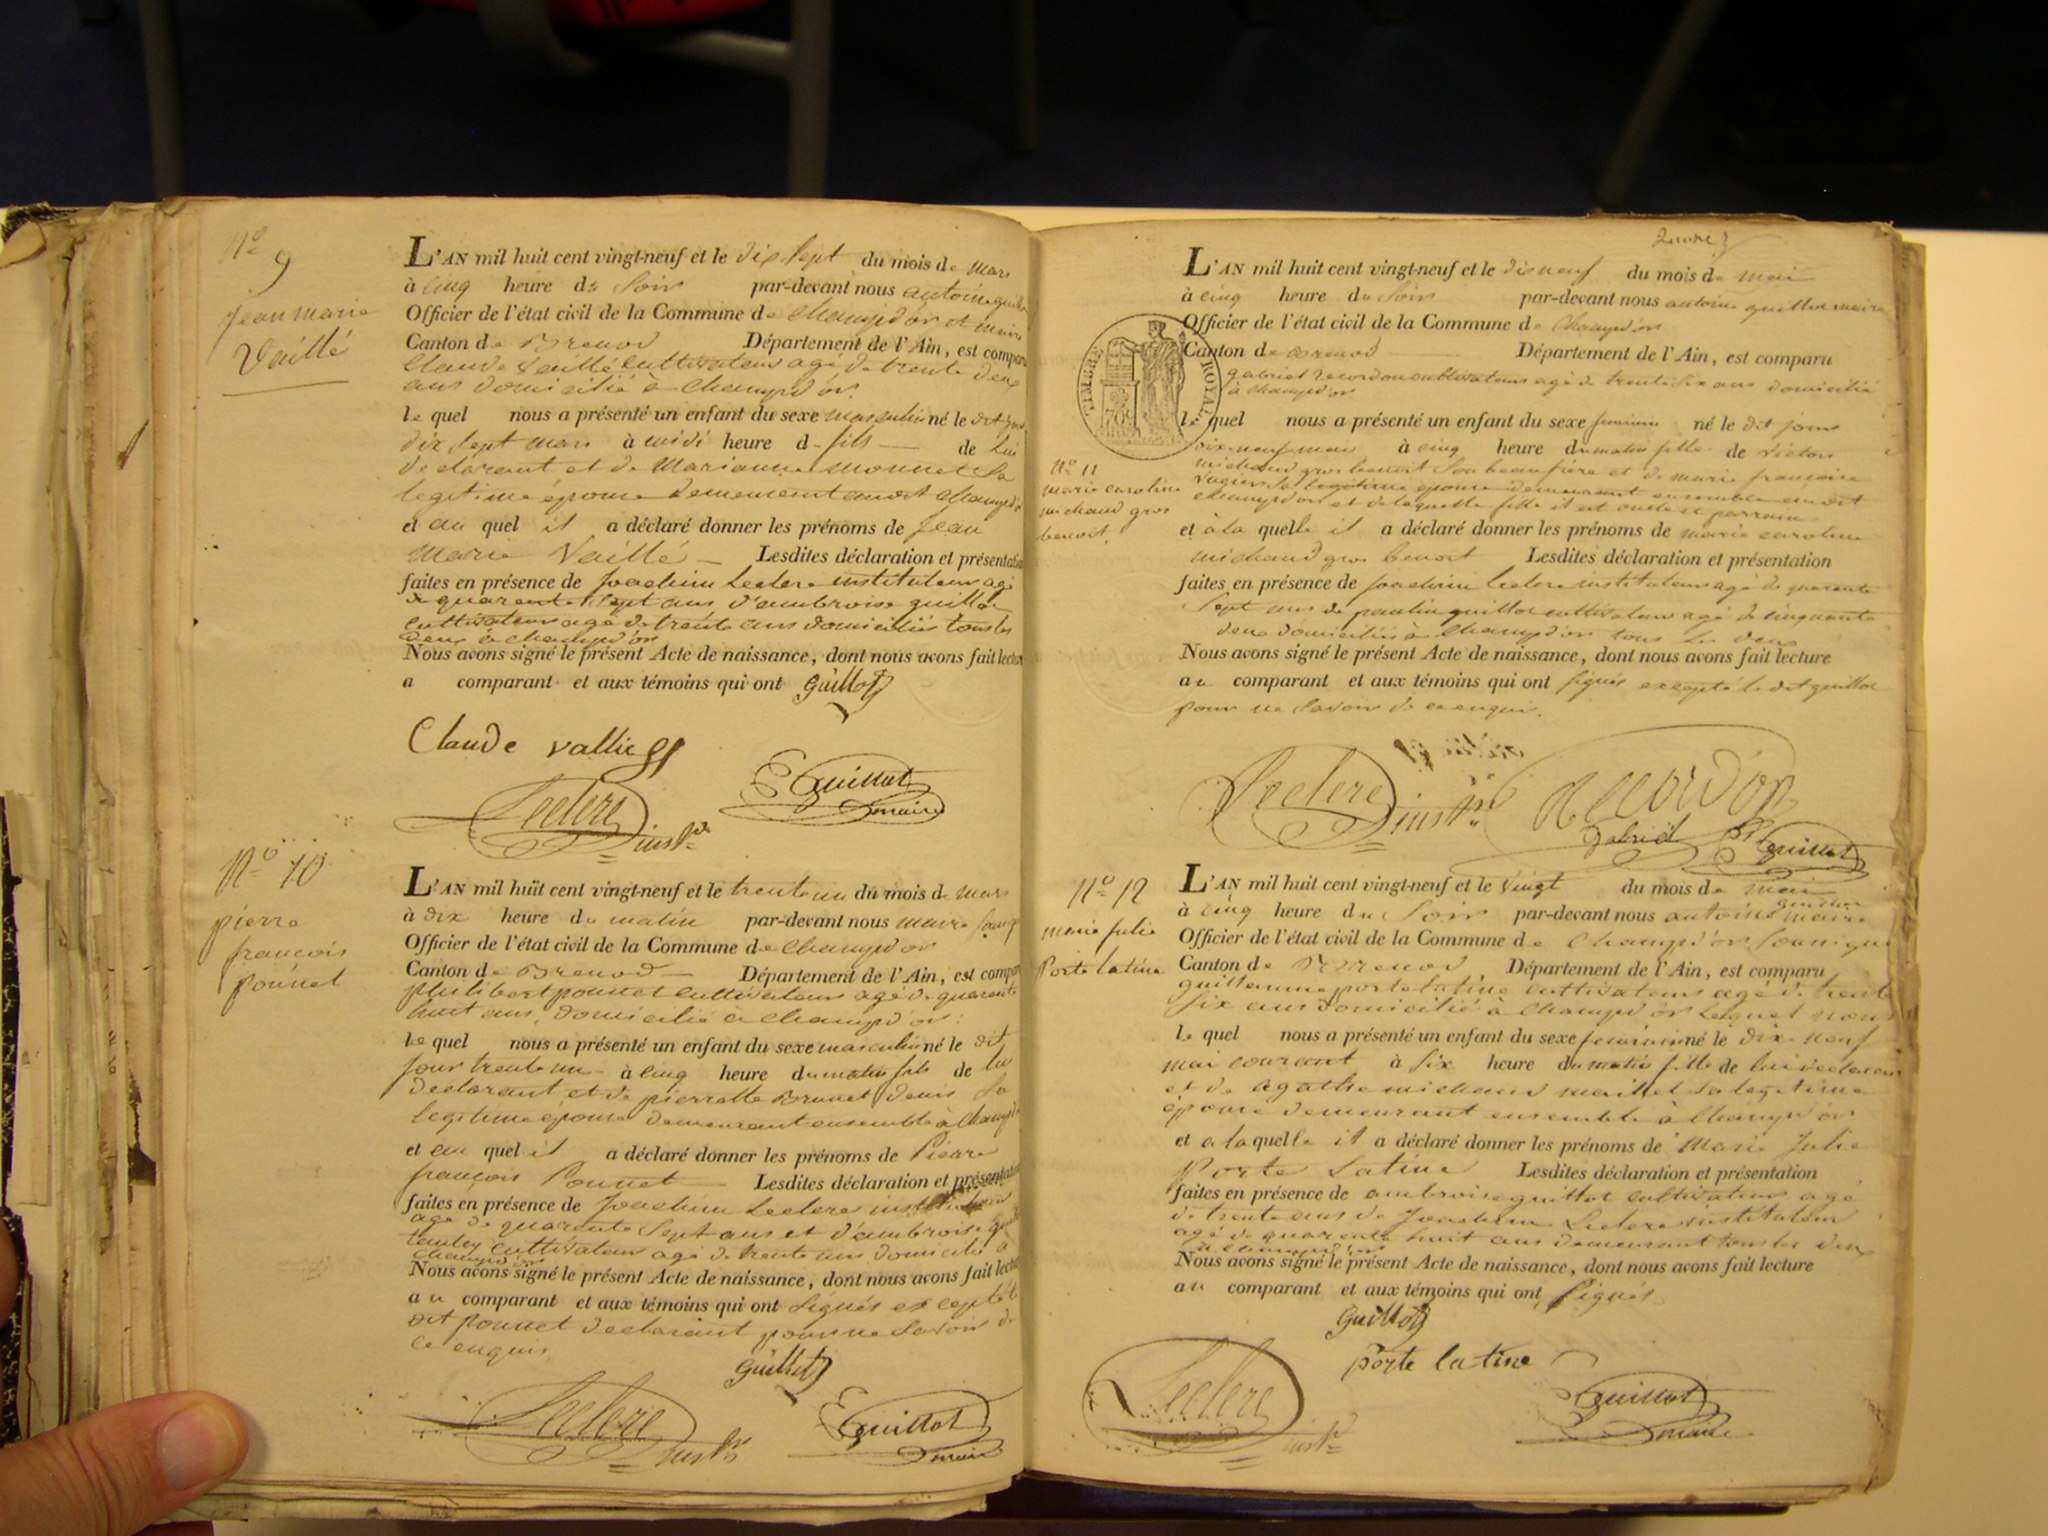 N.o 9
jean marie
Vaillé
L'AN mil huit cent vingt-neuf et le dix Sept du mois de mars
à cinq heure du Soir par-devant nous antoine
Officier de l'état civil de la Commune de Champd'or et maire
Canton de Brenod Département de l'Ain, est comparu
Claude Vaillé cultivateur agé de trente deux
ans domicilié à Champd'or.
le quel nous a présenté un enfant du sexe masculin né le dit jour
dix Sept mars à midi heure d fils de Lui
declarant et de Marianne monnet Sa
legitime épouse demeurant Champd'or
et au quel il a déclaré donner les prénoms de jean
Marie Vaillé Lesdites déclaration et présentation
faites en présence de Joachim Leclerc instituteur agé
de quarente Sept ans, d'ambroise guillot
cultivateur agé de trente ans domiciliés tous les
deux a champd'or
Nous avons signé le présent Acte de naissance, dont nous avons fait lecture
a comparant et aux témoins qui ont Guillot
Claude vallie
Leclerc inst.r
Guillot maire
N.o 10
pierre
françois
ponnet
L'AN mil huit cent vingt-neuf et le trente un du mois de mars
à dix heure du matin par-devant nous maire
Officier de l'état civil de la Commune de Champd'or
Canton de Brenod Département de l'Ain, est comparu
philibert ponnet cultivateur agé de quarente
huit ans, domicilié a Champd'or:
le quel nous a présenté un enfant du sexe masculin né le dit
jour trente un à cinq heure du matin fils de lui
declarant et de pierrette Brunet denis Sa
legitime épouse demeurant ensemble à Champd'or
et au quel il a déclaré donner les prénoms de Pierre
françois Ponnet Lesdites déclaration et présentation
faites en présence de Joachim Leclerc instituteur
agé de quarente Sept ans et d'ambroise
cultivateur agé de trente ans domicilié a
champd'or
Nous avons signé le présent Acte de naissance, dont nous avons fait lecture
au comparant et aux témoins qui ont Signés excepté le
dit ponnet declarant pour ne Savoir de
ce enquis
Guillot
Leclerc inst.r
Guillot maire
TIMBRE ROYAL
N.o 11
marie caroline
michaud gros
benoit.
L'AN mil huit cent vingt-neuf et le dix neuf du mois de mai
à cinq heure du Soir par-devant nous antoine guillot maire
Officier de l'état civil de la Commune de Champd'or
Canton de Brenod Département de l'Ain, est comparu
gabriel recordon cultivateur agé de trente Six ans domicilié
à champd'or
le quel nous a présenté un enfant du sexe feminin né le dit jour
dix neuf mai à cinq heure du matin fille de Victor
michaud gros benoit Son beau frère et de marie françoise
Sa legitime épouse demeurant ensemble au dit
champd'or et de laquelle fille il est oncle et parrain
et à la quelle il a déclaré donner les prénoms de marie caroline
michaud gros benoit Lesdites déclaration et présentation
faites en présence de Joachim Leclerc instituteur agé de quarente
Sept ans de paulin guillot cultivateur agé de cinquante
deux domiciliés à Champd'or tous les deux
Nous avons signé le présent Acte de naissance, dont nous avons fait lecture
au comparant et aux témoins qui ont signés excepté le dit guillot
pour ne Savoir de ce enquis.
Leclerc inst.r
Recordon
Gabriel
Guillot
N.o 12
marie julie
Porte latine
L'AN mil huit cent vingt-neuf et le vingt du mois de mai
à cinq heure du Soir par-devant nous antoine guillot maire
Officier de l'état civil de la Commune de Champd'or
Canton de Brenod Département de l'Ain, est comparu
guillaume porte latine cultivateur agé de trente
six ans domicilié à Champd'or Lequel nous
le quel nous a présenté un enfant du sexe feminin né le dix-neuf
mai courant à Six heure du matin fille de lui declarant
et de agathe michaud maillet Sa legitime
épouse demeurant ensemble à Champd'or
et a la quelle il a déclaré donner les prénoms de Marie Julie
Porte Latine Lesdites déclaration et présentation
faites en présence de ambroise guillot cultivateur agé
de trente ans de Joachim Leclerc instituteur
agé de quarente huit ans demeurant tous les deux
à champd'or
Nous avons signé le présent Acte de naissance, dont nous avons fait lecture
au comparant et aux témoins qui ont Signés
Guillot
porte latine
Leclerc inst.r
Guillot maire